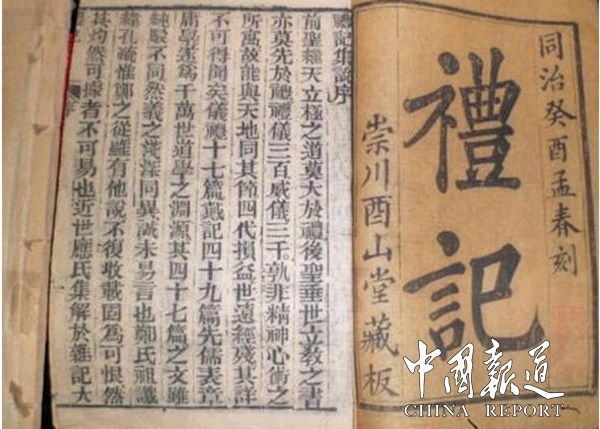 同治癸酉孟春刻
禮記
崇川酉山堂藏板
禮記集說序
前聖繼天立極之道莫大於禮後聖垂世立教之書
亦莫先於禮禮儀三百威儀三千。孰非精神心術之
所寓故能與天地同其節四代損益世遠經殘其詳
不可得聞矣儀禮十七篇戴記四十九篇先儒表章
庸學遂為千萬世道學之淵源其四十七篇之文雖
純駁不同然義之淺深同異誠未易言也鄭氏祖讖
緯孔疏惟鄭之從雖有他說不復收載固為可恨然
其灼然可據者不可易也近世應氏集解於雜記大
中國報道
CHINA REPORT